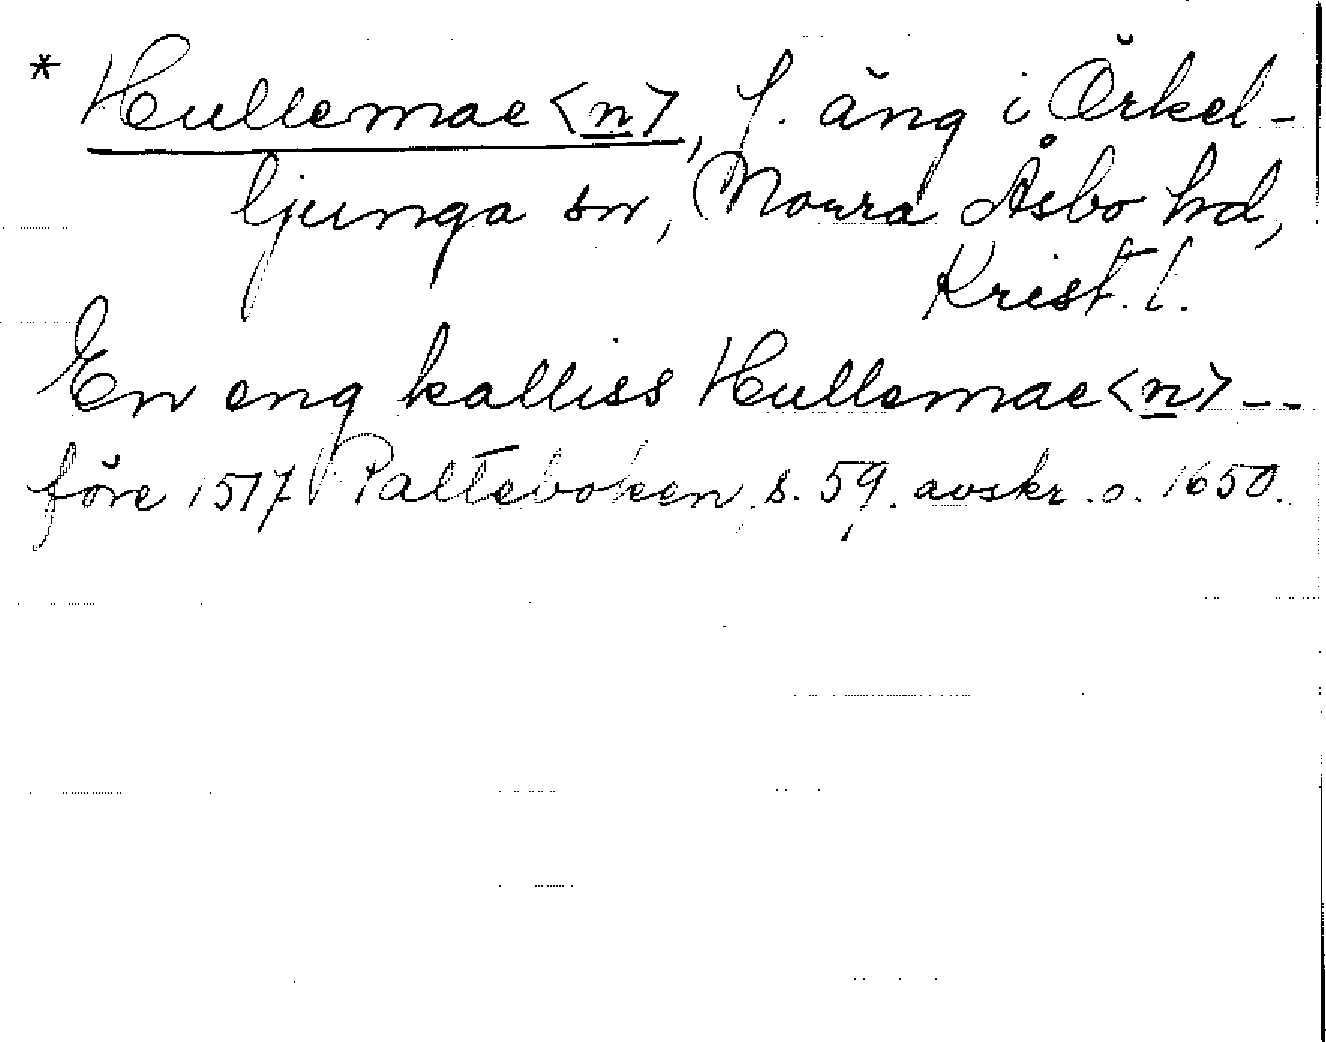 * Hullemae<n>, f. äng i Örkel-
ljunga sn, Norra Åsbo hd,
Krist. l.
En eng kalliss Hullemae<n> --
före 1517 Palteboken s. 59. avskr. o. 1650.